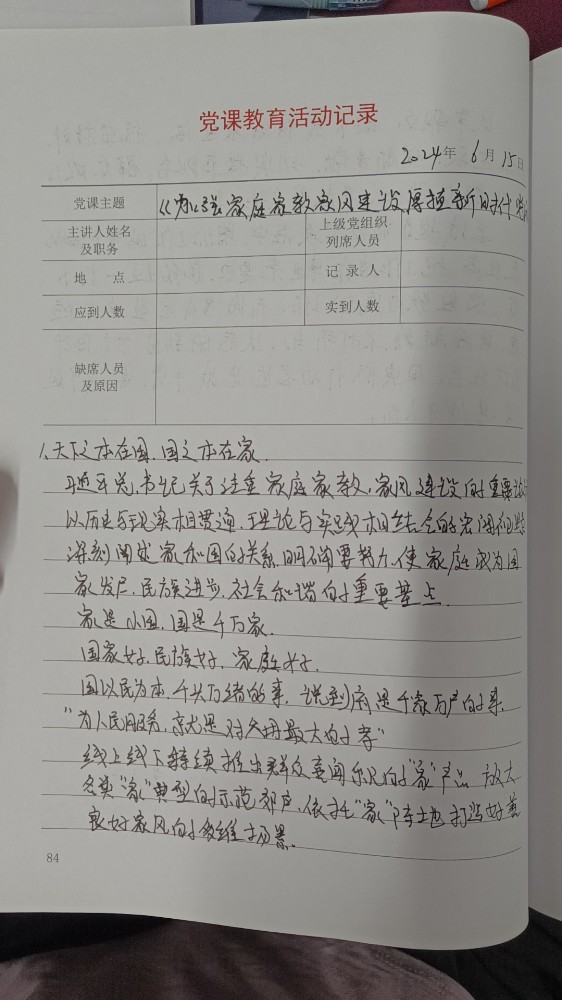 党课教育活动记录
2024年 6月 15日
党课主题 《加强家庭家教家风建设厚植新时代
主讲人姓名及职务 上级党组织列席人员
地 点 记 录 人
应到人数 实到人数
缺席人员及原因
1、天下之本在国，国之本在家。
习近平总书记关于注重家庭家教，家风建设的重要论
以历史与现实相贯通，理论与实践相结合的宏阔视野
深刻阐述家和国的关系，明确要努力使家庭成为国
家发展，民族进步，社会和谐的重要基点。
家是小国，国是千万家。
国家好，民族好，家庭好。
国以民为本，千头万绪的事，说到底是千家万户的事
"为人民服务，就是对父母最大的孝"
线上线下持续推出群众喜闻乐见的"家"产品，放大
各类"家"典型的示范，依托"家"阵地打造好
良好家风的多维场景。
84